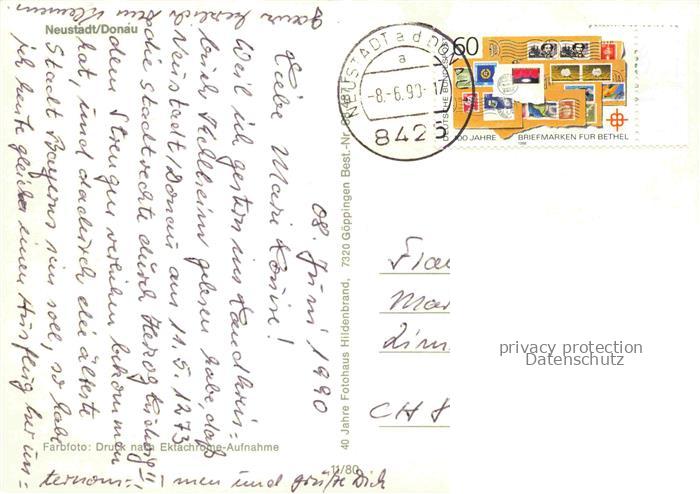 Neustadt/Donau
08. Juni 1990
Liebe Marie Louise!
Weil ich gestern im Landkreis=
buch Kelheim gelesen habe, daß
Neustadt/Donau am 11.5.1273
die Stadtrechte durch Herzog Ludwig II
dem Strengen verliehen bekommen
hat, und dadurch die älteste
Stadt Bayerns sein soll, so habe
ich heute gleich einen Ausflug hier un=
ternom= men und grüße Dich
ganz herzlich
dein
Farbfoto: Druck nach Ektachrome-Aufnahme
11/80
40 Jahre Fotohaus Hildenbrand, 7320 Göppingen Best.-Nr.
NEUSTADT a d DONAU
a
-8.-6.90-1
842
60
DEUTSCHE BUNDESPOST
100 JAHRE BRIEFMARKEN FÜR BETHEL
1988
Mar
CH 8
privacy protection
Datenschutz